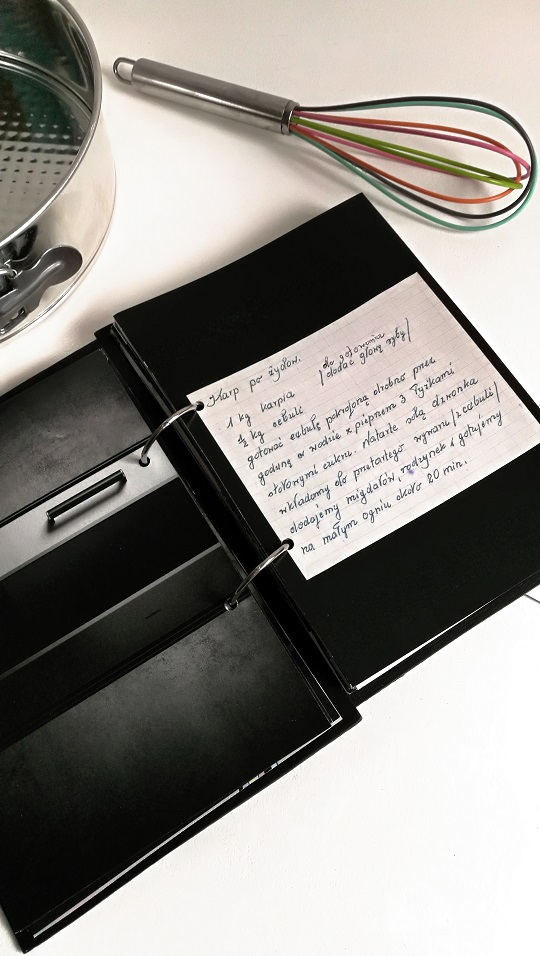 Karp po żydow.
/do gotowania
dodać głowę ryby/
1 kg karpia
½ kg cebuli
gotować cebulę pokrojoną drobno przez
godzinę w wodzie z pieprzem 3 łyżkami
stołowymi cukru. Natarte solą dzwonka
wkładamy do przetartego wywaru /z cebuli/
dodajemy migdałów, rodzynek i gotujemy
na małym ogniu około 20 min.